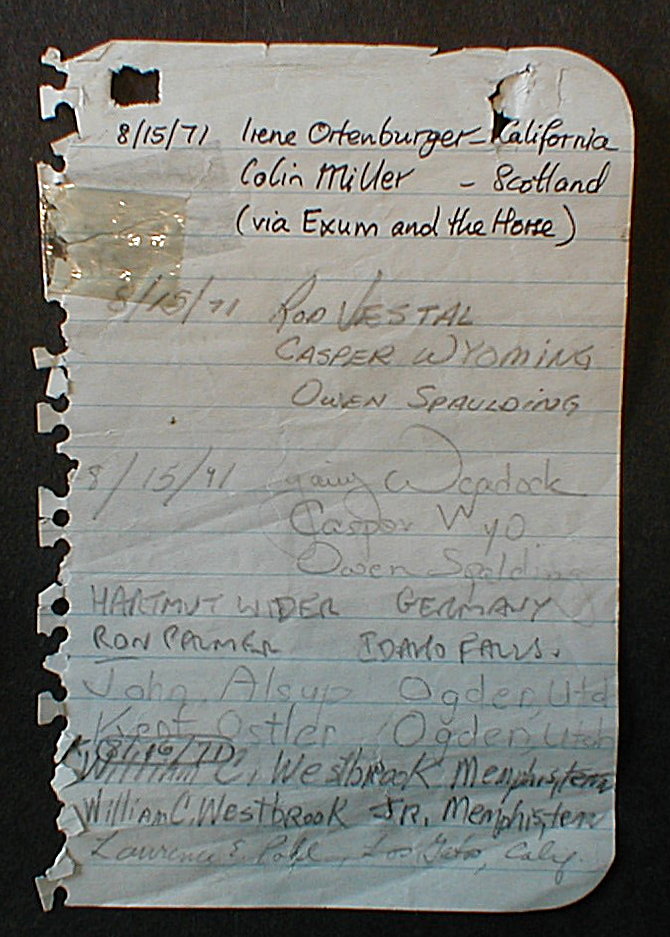 8/15/71 Irene Ortenburger - California
Colin Miller - Scotland
(via Exum and the Horse)
8/15/71 ROD VESTAL
CASPER WYOMING
OWEN SPAULDING
8/15/71
Casper Wyo
Owen Spalding
HARTMUT WIDER GERMANY
RON PALMER IDAHO FALLS.
John Alsup Ogden, Utd
Kent Ostler Ogden, Utah
K. (8/16/71)
William C. Westbrook Memphis, tenn
William C. Westbrook JR. Memphis, tenn
Laurence E. Los Gatos, Calif.